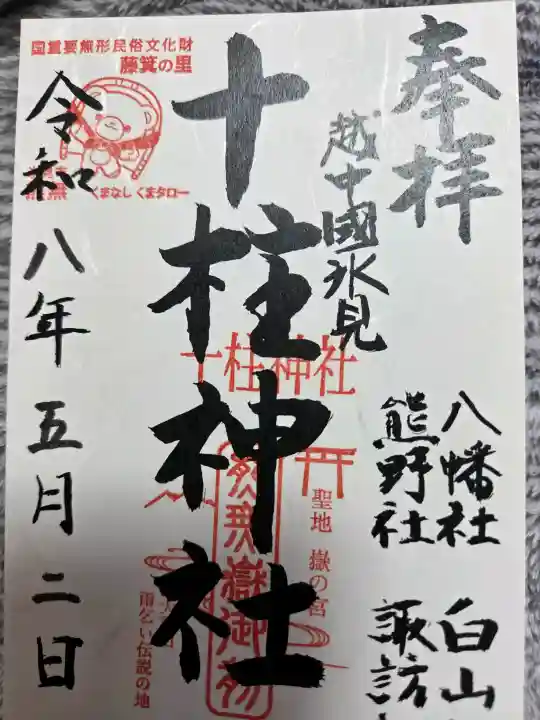 奉拝
越中國氷見
八幡社 白山
熊野社 諏訪
十柱神社
十柱神社
聖地 嶽の宮
雨乞い伝説の地
国重要無形民俗文化財
藤箕の里
くまなし くまタロー
令和八年五月二日